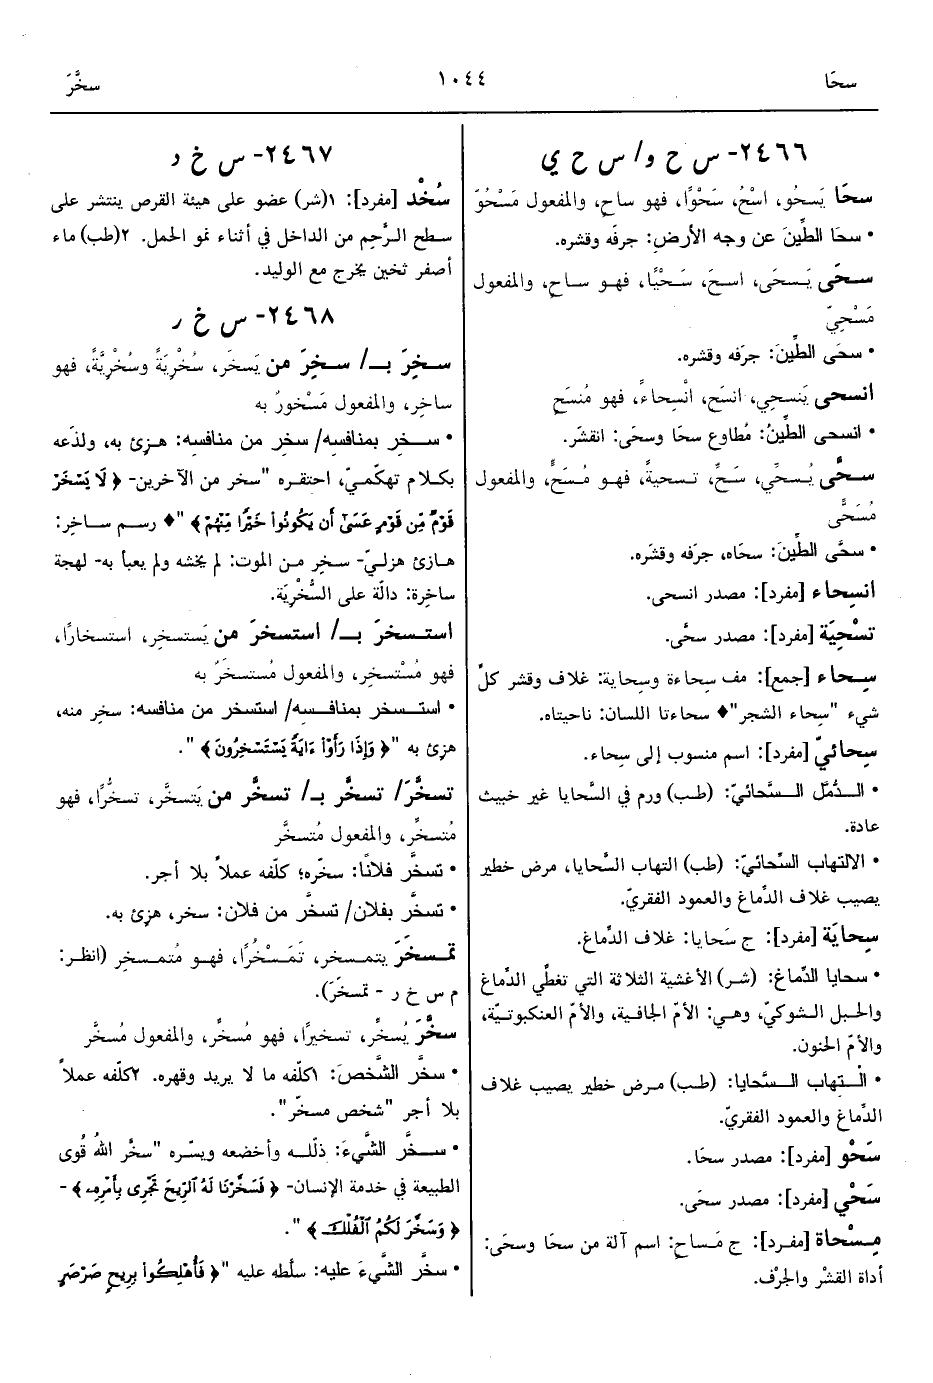 سحَا
١٠٤٤
سخَّرَ
٢٤٦٦- س ح و/ س ح ي
سحَا يَسحُو، اسْحُ، سَحْوًا، فهو ساحٍ، والمفعول مَسْحُوّ
• سحَا الطِّينَ عن وجه الأرض: جرفَه وقشره.
سحَى يَسحَى، اسحَ، سَحْيًا، فهو ساحٍ، والمفعول
مَسْحِيّ
• سحَى الطِّينَ: جرَفه وقشره.
انسحى يَنسحِي، انسَحِ، انْسِحاءً، فهو مُنسَحٍ
• انسحى الطِّينُ: مُطاوع سحَا وسحَى: انقشَر.
سحَّى يُسحِّي، سَحِّ، تسحيةً، فهو مُسَحٍّ، والمفعول
مُسَحًّى
• سحَّى الطِّينَ: سحَاه، جرَفه وقشَره.
انسِحاء [مفرد]: مصدر انسحى.
تسْحِيَة [مفرد]: مصدر سحَّى.
سِحاء [جمع]: مف سِحاءة وسِحاية: غلاف وقشر كلّ
شيء "سِحاء الشجر"♦ سحاءتا اللسان: ناحيتاه.
سِحائيّ [مفرد]: اسم منسوب إلى سِحاء.
• الدُّمَّل السَّحائيّ: (طب) ورم في السَّحايا غير خبيث
عادة.
• الالتهاب السِّحائيّ: (طب) التهاب السَّحايا، مرض خطير
يصيب غلاف الدِّماغ والعمود الفقريّ.
سِحايَة [مفرد]: ج سَحايا: غلاف الدِّماغ.
• سحايا الدِّماغ: (شر) الأغشية الثلاثة التي تغطِّي الدِّماغ
والحبل الشوكيّ، وهي: الأمّ الجافية، والأمّ العنكبوتيّة،
والأمّ الحنون.
• الْتهاب السَّحايا: (طب) مرض خطير يصيب غلاف
الدِّماغ والعمود الفقريّ.
سَحْو [مفرد]: مصدر سحَا.
سَحْي [مفرد]: مصدر سحَى.
مِسْحاة [مفرد]: ج مَساحٍ: اسم آلة من سحَا وسحَى:
أداة القشْر والجرْف.
٢٤٦٧- س خ د
سُخْد [مفرد]: ١(شر) عضو على هيئة القرص ينتشر على
سطح الرَّحِم من الداخل في أثناء نمو الحمل. ٢(طب) ماء
أصفر ثخين يخرج مع الوليد.
٢٤٦٨- س خ ر
سخِرَ بـ/ سخِرَ من يَسخَر، سُخْرِيَةً وسُخْرِيَّةً، فهو
ساخِر، والمفعول مَسْخورٌ به
• سخِر بمنافسِه/ سخِر من منافسِه: هزِئ به، ولذَعه
بكلام تهكّميّ، احتقره "سخر من الآخرين- ﴿ لَا يَسْخَرْ
قَوْمٌ مِّن قَوْمٍ عَسَىٰ أَن يَكُونُوا۟ خَيْرًا مِّنْهُمْ ﴾ "♦ رسم ساخِر:
هازئ هزليّ- سخِر من الموت: لم يخشه ولم يعبأ به- لهجة
ساخِرة: دالّة على السُّخْريَة.
استسخرَ بـ/ استسخرَ من يَستسخِر، استسخارًا،
فهو مُسْتسخِر، والمفعول مُستسخَرٌ به
• استسخر بمنافسِه/ استسخر من منافسه: سخِر منه،
هزِئ به "﴿ وَإِذَا رَأَوْا۟ ءَايَةً يَسْتَسْخِرُونَ ﴾ ".
تسخَّرَ/ تسخَّرَ بـ/ تسخَّرَ من يَتسخَّر، تسخُّرًا، فهو
مُتسخِّر، والمفعول مُتسخَّر
• تسخَّر فلانًا: سخّره؛ كلّفه عملاً بلا أجر.
• تسخَّر بفلان/ تسخَّر من فلان: سخر، هزِئ به.
تمسخرَ يتمسخر، تَمَسْخُرًا، فهو مُتمسخِر (انظر:
م س خ ر - تمسخَرَ).
سخَّرَ يُسخِّر، تسخيرًا، فهو مُسخِّر، والمفعول مُسخَّر
• سخَّر الشَّخصَ: ١كلّفه ما لا يريد وقهره. ٢كلّفه عملاً
بلا أجر "شخص مسخّر".
• سخَّر الشَّيءَ: ذلّله وأخضعه ويسّره "سخَّر اللهُ قُوى
الطبيعة في خدمة الإنسان- ﴿ فَسَخَّرْنَا لَهُ ٱلرِّيحَ تَجْرِى بِأَمْرِهِۦ ﴾ -
﴿ وَسَخَّرَ لَكُمُ ٱلْفُلْكَ ﴾ ".
• سخَّر الشَّيءَ عليه: سلَّطه عليه "﴿ فَأُهْلِكُوا۟ بِرِيحٍ صَرْصَرٍ